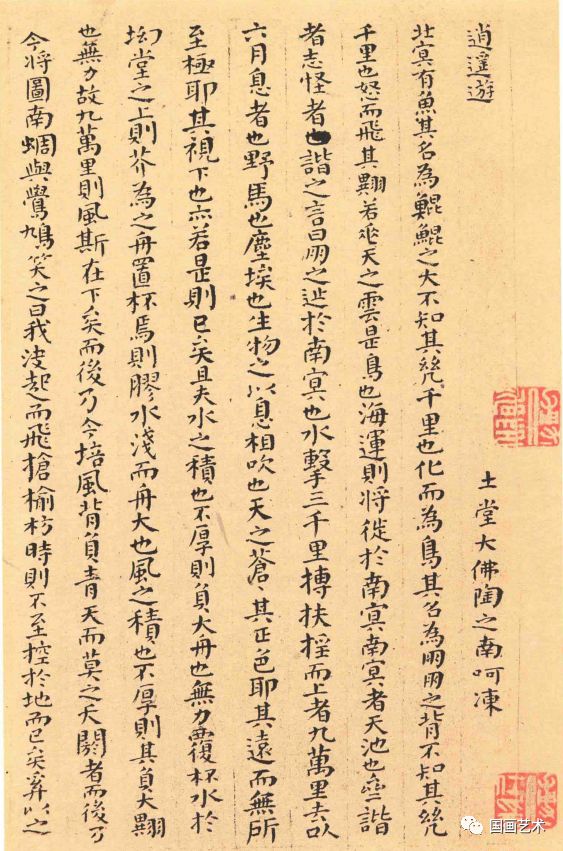 逍遥遊
土堂大佛陶之南呵凍
北冥有魚其名為鯤鯤之大不知其幾千里也化而為鳥其名為朋朋之背不知其幾
千里也怒而飛其翼若垂天之雲是鳥也海運則將徙於南冥南冥者天池也齊諧
者志怪者也諧之言曰朋之徙於南冥也水擊三千里摶扶揺而上者九萬里去以
六月息者也野馬也塵埃也生物之以息相吹也天之蒼〻其正色耶其遠而無所
至極耶其視下也亦若是則已矣且夫水之積也不厚則負大舟也無力覆杯水於
坳堂之上則芥為之舟置杯焉則膠水淺而舟大也風之積也不厚則其負大翼
也無力故九萬里則風斯在下矣而後乃今培風背負青天而莫之夭閼者而後乃
今將圖南蜩與鷽鳩笑之曰我決起而飛搶榆枋時則不至控於地而已矣奚以之
国画艺术